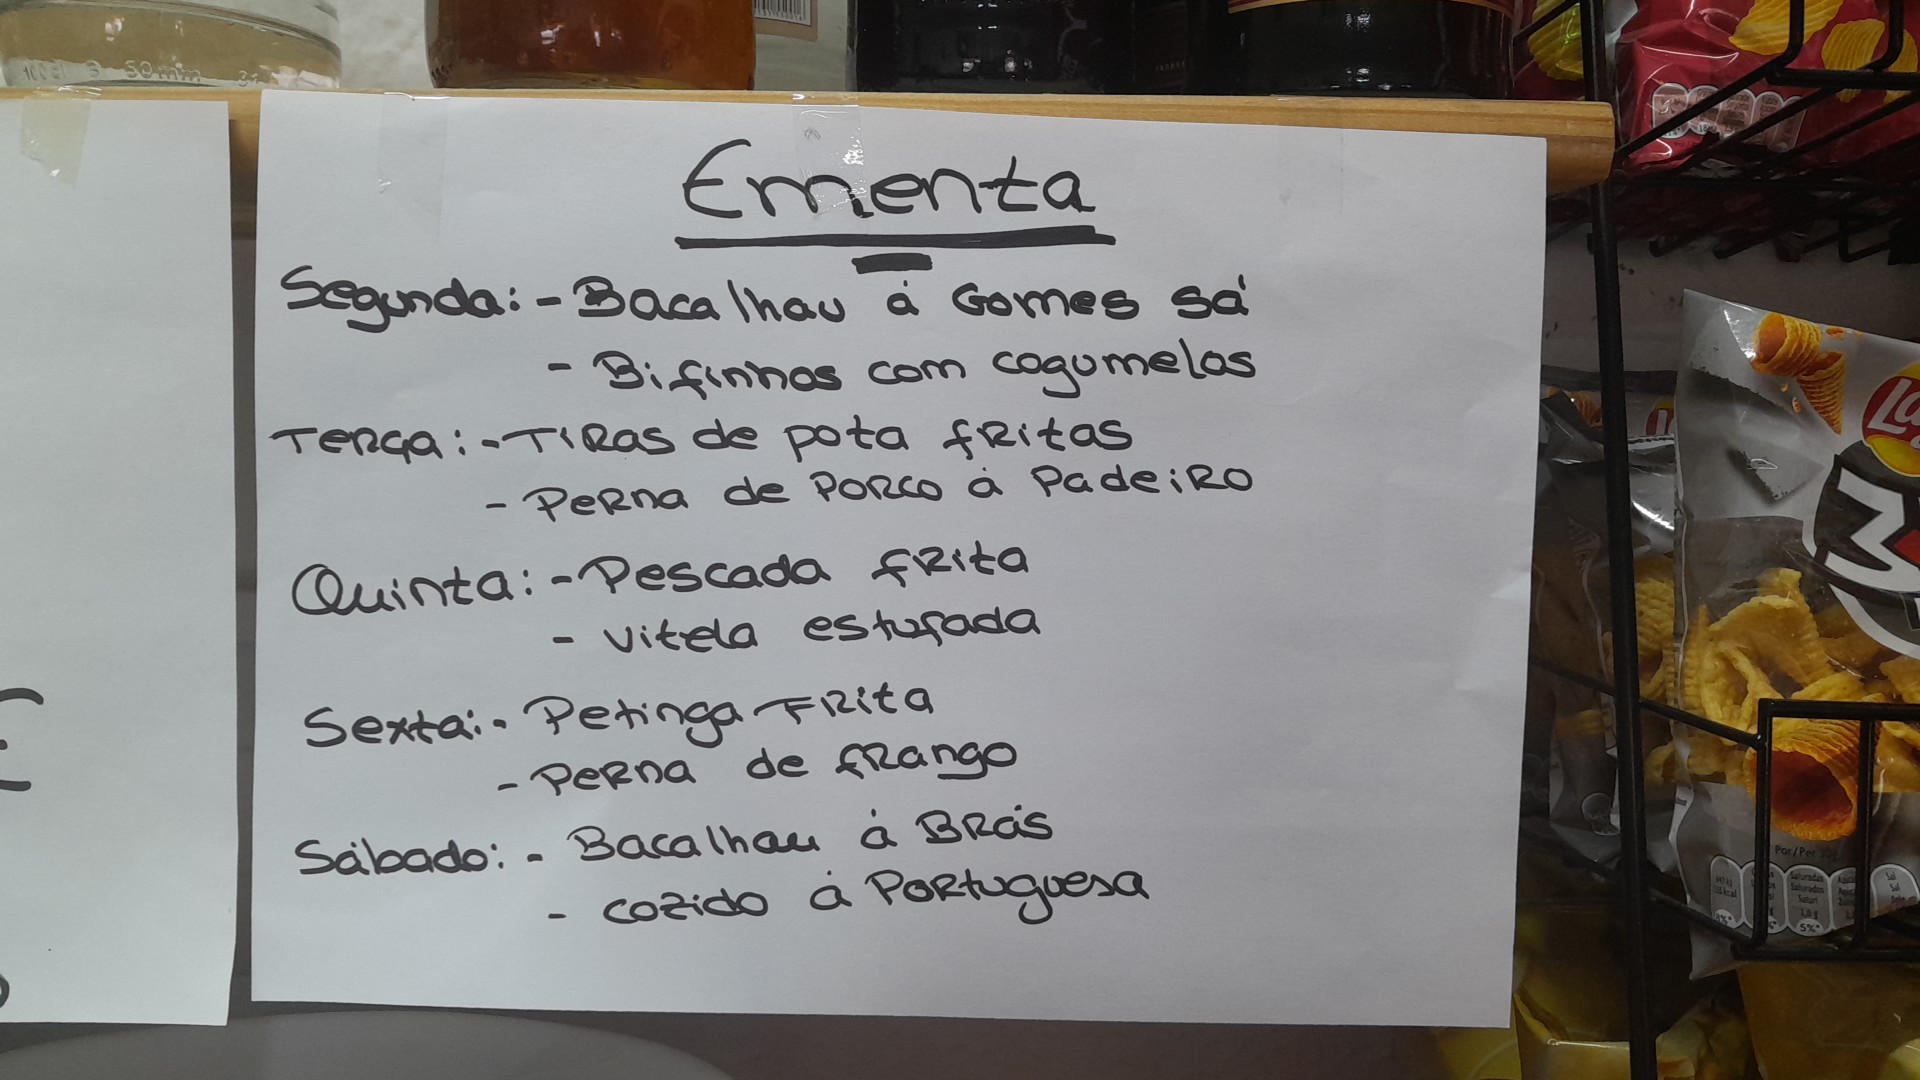 Ementa
Segunda: - Bacalhau á Gomes sá
- Bifinhos com cogumelos
Terça: - Tiras de pota fritas
- Perna de Porco á Padeiro
Quinta: - Pescada frita
- vitela estufada
Sexta: - Petinga Frita
- Perna de frango
Sábado: - Bacalhau á Brás
- cozido á Portuguesa
Por/Per
5%*